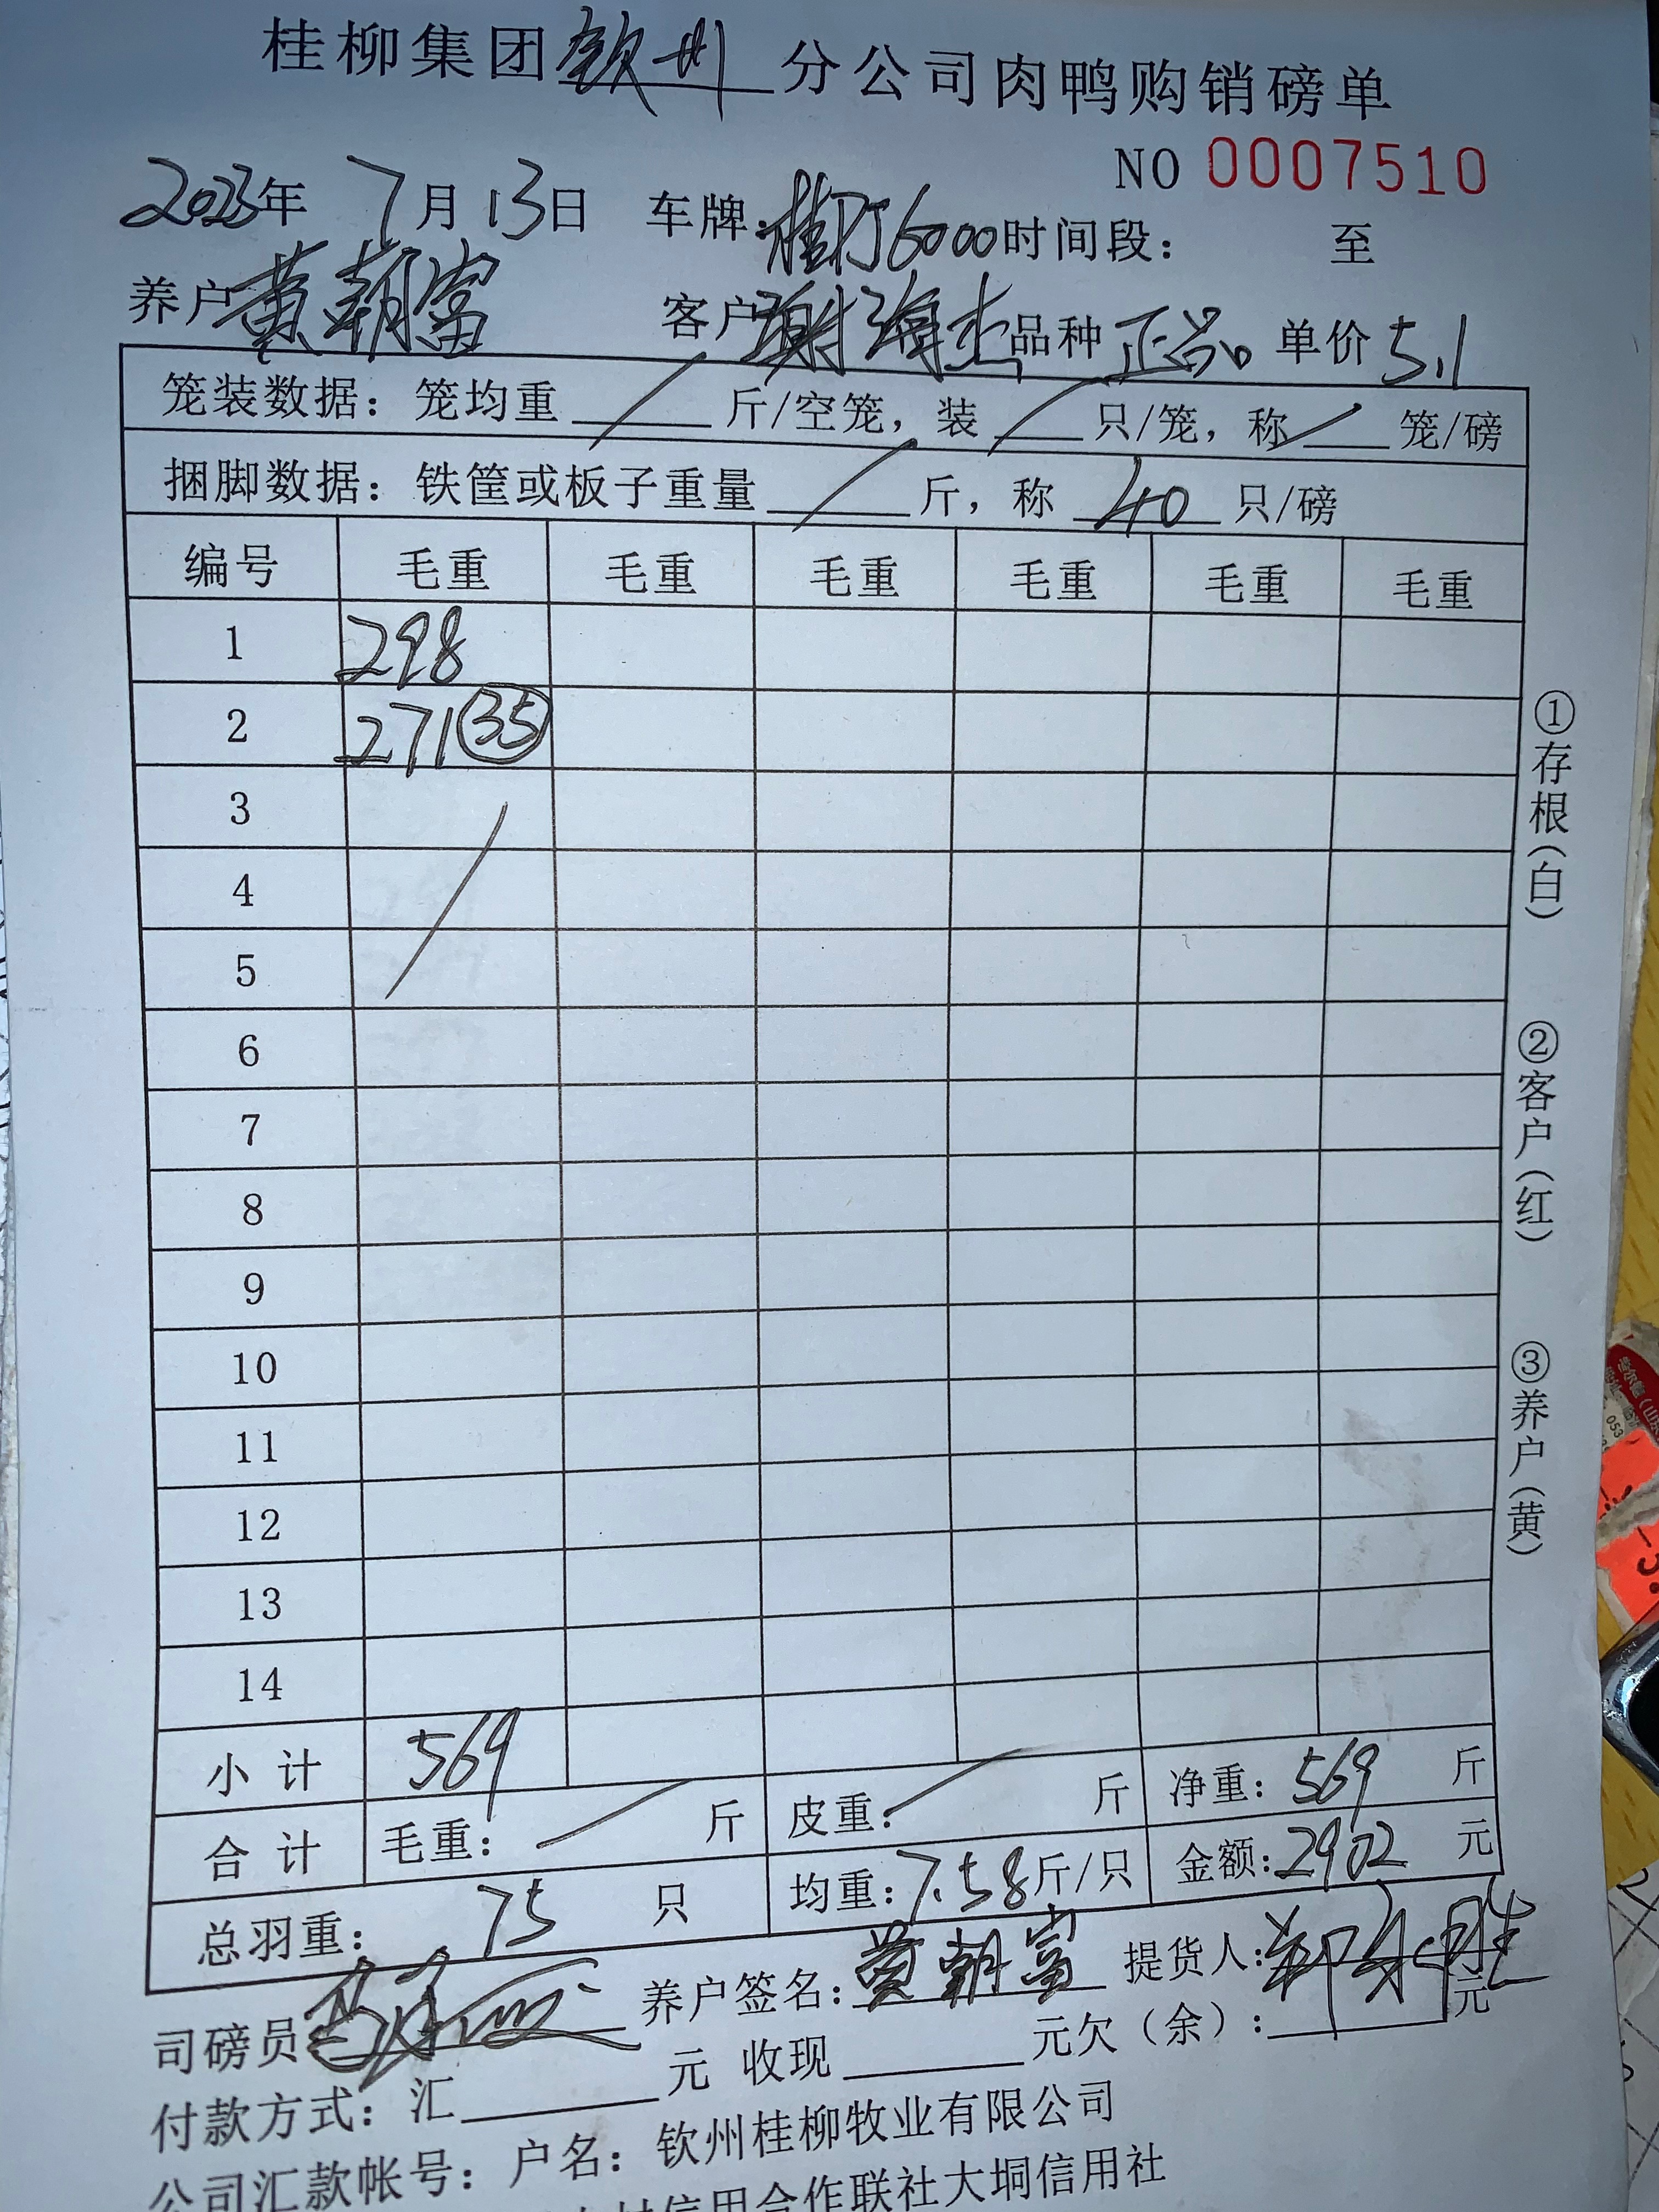 桂柳集团钦州分公司肉鸭购销磅单
NO 0007510
2023年 7月13日 车牌:桂 6000时间段: 至
养户黄朝富 客户谢海杰品种 正品 单价5.1
笼装数据: 笼均重 / 斤/空笼, 装 / 只/笼, 称 / 笼/磅
捆脚数据: 铁筐或板子重量 / 斤, 称 40 只/磅
编号 毛重 毛重 毛重 毛重 毛重 毛重
1 298
2 271 ㉟
3
4
5
6
7
8
9
10
11
12
13
14
小 计 569
合 计 毛重: / 斤 皮重: / 斤 净重: 569 斤
总羽重: 75 只 均重: 7.58斤/只 金额:2902 元
司磅员 养户签名:黄朝富 提货人:
付款方式: 汇 元 收现 元欠(余): 元
公司汇款帐号: 户名: 钦州桂柳牧业有限公司
信用合作联社大垌信用社
①存根(白)
②客户(红)
③养户(黄)